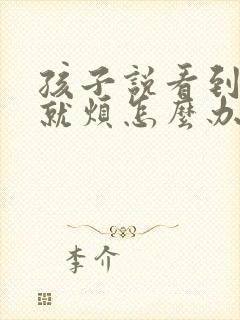 孩子説看到
就煩怎麼办
李介